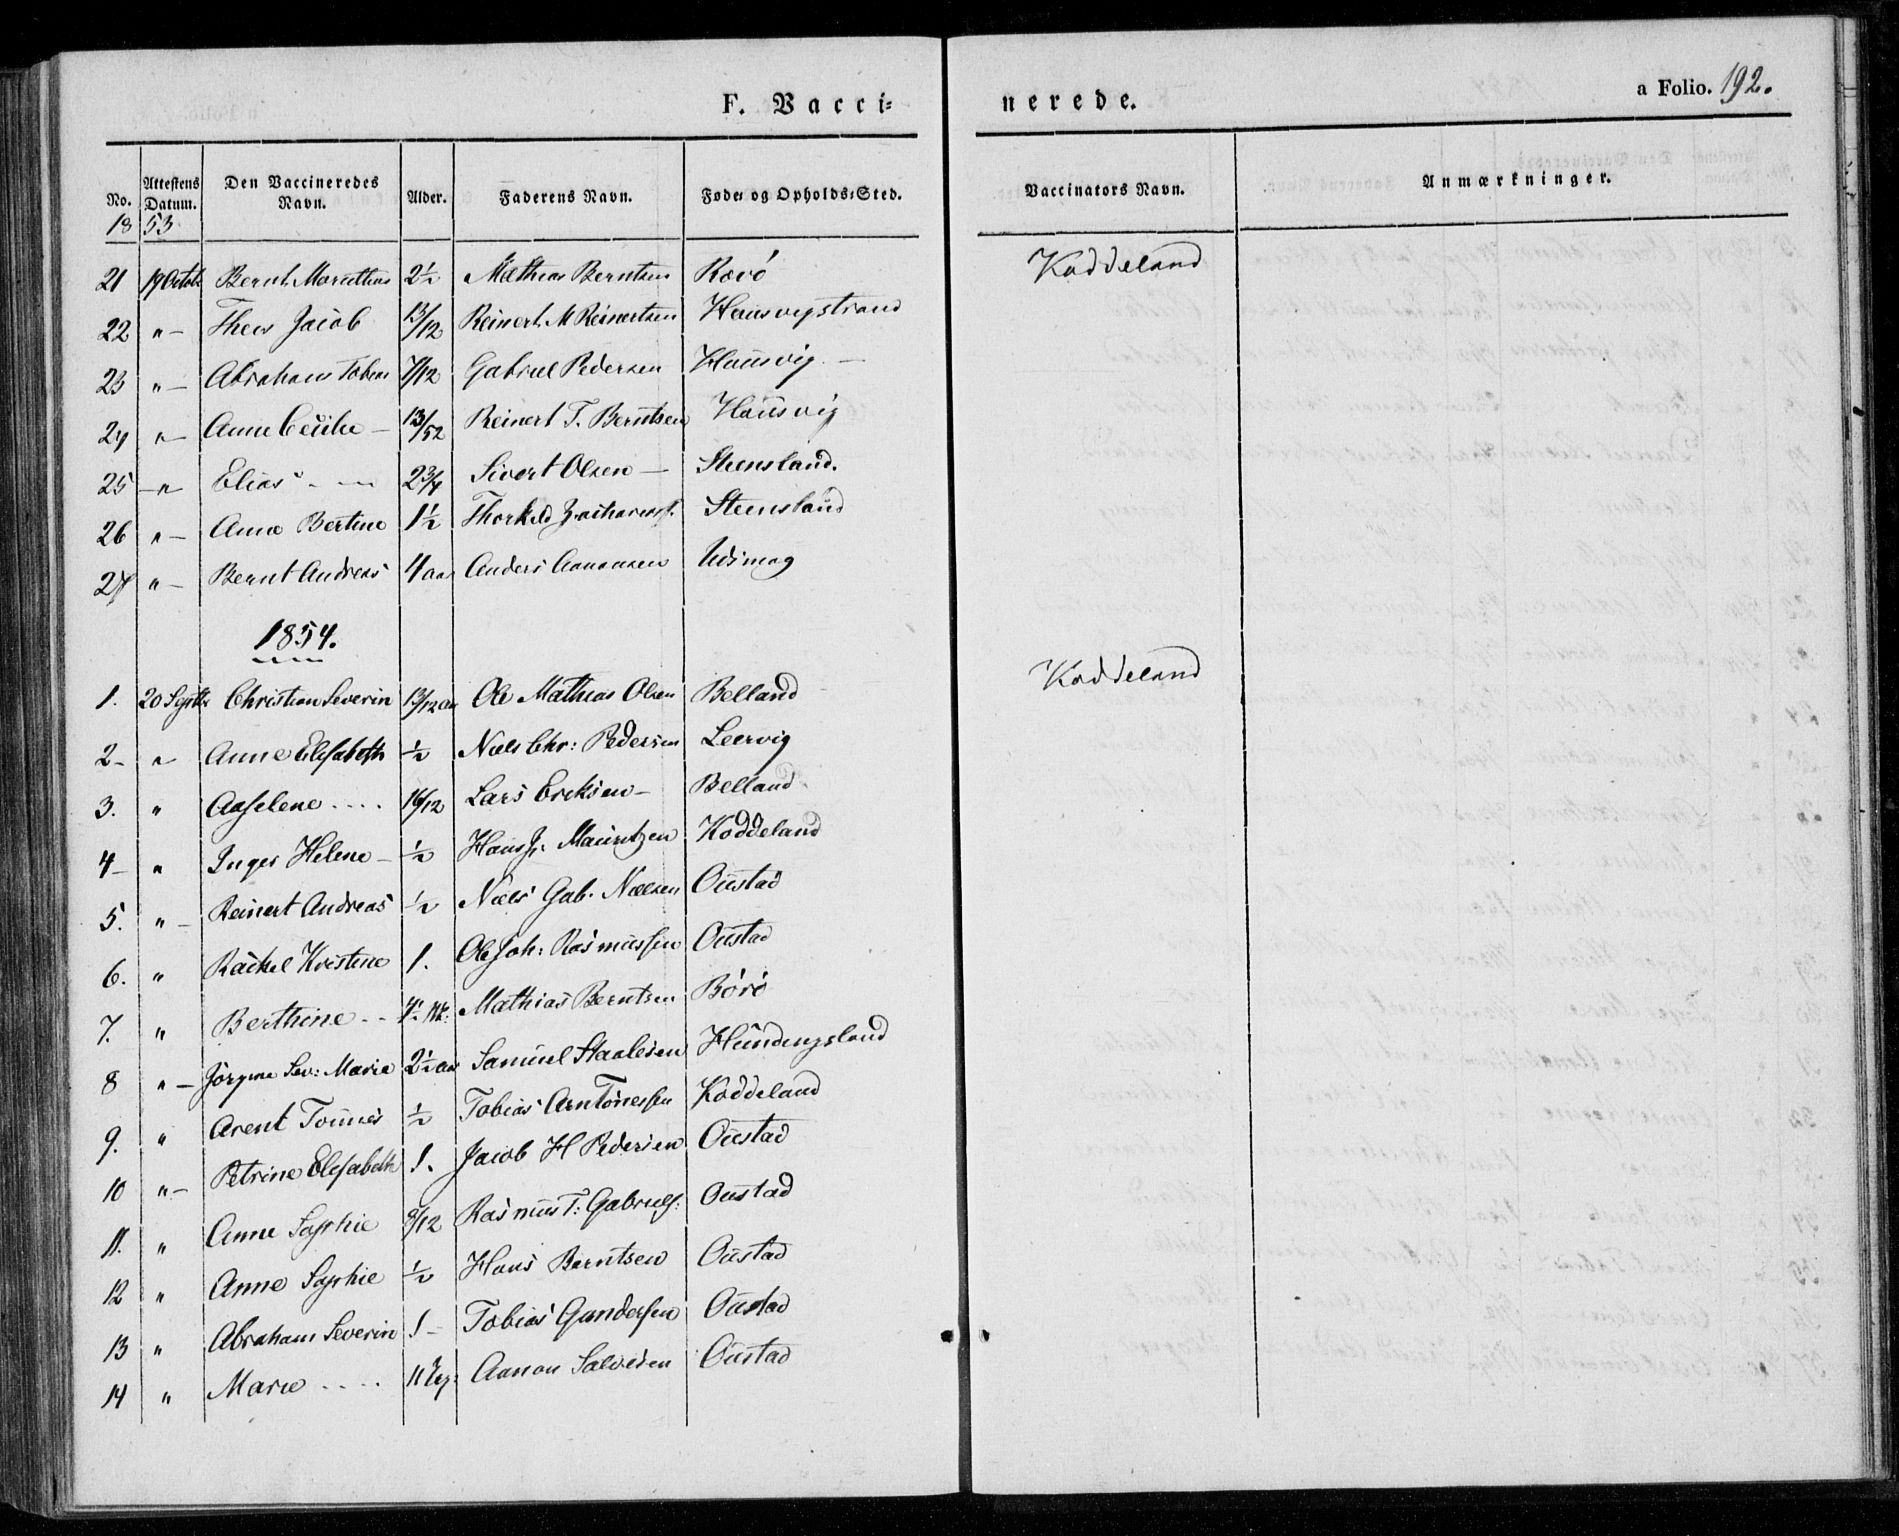 F. Vacci=
nerede.
a Folio. 192.
No. Attestens Datum. Den Vaccineredes Navn. Alder. Faderens Navn. Føde= og Opholds=Sted. Vaccinators Navn. Anmærkninger.
1853
21 19 Octob Bernt 2½ Mathias Berntsen Kaddeland
22 " – Theis Jacob 13/12 Reinert M Reinertsen Hausvigstrand
23 " – Abraham Tobias 7/12 Gabriel Pedersen Hausvig –
24 " – Anne Cecilie – 13/52 Reinert T. Berntsen Hausvig
25 – " Elias 2¾ Sivert Olsen – Steensland.
26 " – Anne Bertine 1½ Thorkild Zachariass. Steensland
27 " – Bernt Andreas 4 aar Anders Aanensen
1854.
1. 20 Septbr Christian Severin 13/12 aar Ole Mathias Olsen Belland Kaddeland
2 – " Anne Elisabeth ½ Niels Chr: Pedersen Leervig
3. " Aaselene .... 16/12 Lars Ericksen – Belland
4 – " Inger Helene – ½ Hans J. Mauritzen Koddeland
5. " – Reinert Andreas ½ Niels Gab. Nielsen Oustad
6. " Rachel Kristine 1. Ole Joh: Rasmussen Oustad
7. " Berthine .. Mathias Berntsen
8 " – Jörgine Sev: Marie 2½ aar Samuel Staalesen Hundingsland
9. " Arent Tönnes ½ Tobias Arntönessen Koddeland
10 " – Petrine Elisabeth 1. Jacob H Pedersen Oustad
11. " Anne Sophie 9/12 Rasmus T: Gabriels: Oustad
12 " Anne Sophie ½ Hans Berntsen Oustad
13 " Abraham Severin 1 – Tobias Gundersen Oustad
14 " Marie .... 11 Aanon Salvesen Oustad